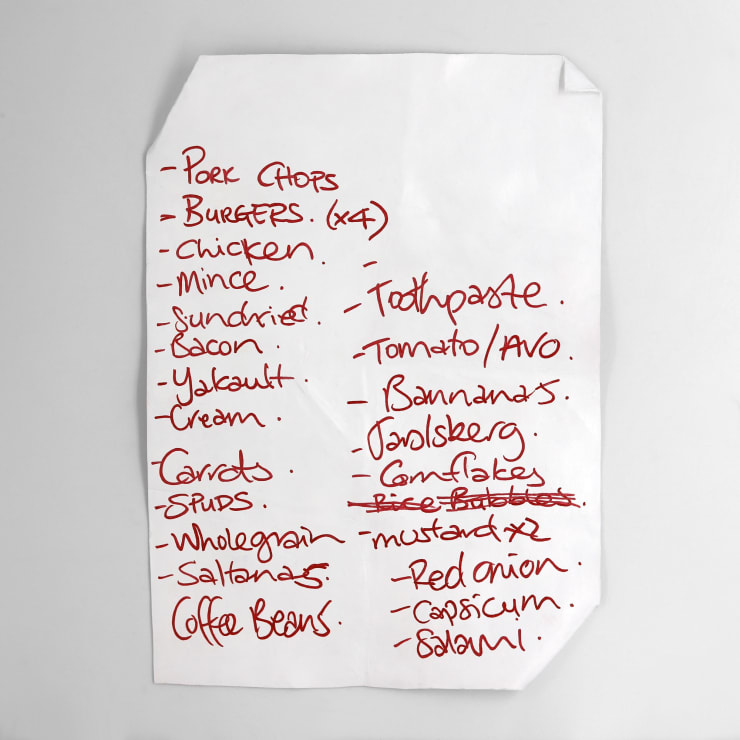 - PORK CHOPS
- BURGERS. (x4)
- Chicken.
- Mince.
- Sundried.
- Bacon.
- Yakault.
- Cream.
- Carrots.
- SPUDS.
- Wholegrain
- Saltanas.
Coffee Beans.
-
- Toothpaste.
- Tomato/AVO.
- Bannanas.
- Jarolsberg.
- Cornflakes
- Rice Bubbles.
- mustard x2
- Red onion.
- Capsicum.
- Salami.